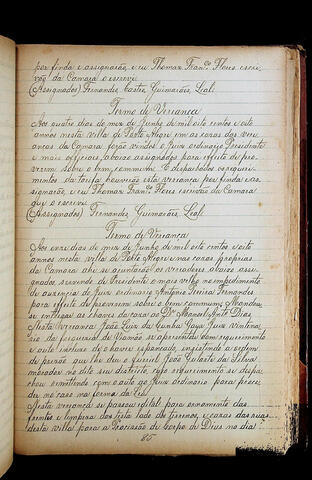 por finda e assignarão, e eu Thomaz Fran.co Flores escri-
vão da Camara o escrevi.
(Assignados) Fernandes Castro, Guimarães, Leal.
Termo de Vereança
Aos quatro dias do mez de Junho de mil oito centos e oito
annos nesta villa de Porto Alegre em as casas das vere
anças da Camara forão vindos o Juiz ordinario Presidente
e mais officiaes abaixo assignados para effeito de pro-
verem sobre o bem commum. E despachados os requeri-
mentos da tarifa houverão esta vereança por finda e as-
signarão, e eu Thomaz Fran.co Flores escrivão da Camara
que o escrevi.
(Assignados) Fernandes, Guimarães, Leal.
Termo de Vereança
Aos onze dias do mez de Junho de mil oito centos e oito
annos nesta villa de Porto Alegre nas casas proprias
da Camara ahi se ajuntarão os vereadores abaixo assi-
gnados, servindo de Presidente o mais velho no impedimento
de auzencia do Juiz ordinario Antonio Ferreira Fernandes
para effeito de proverem sobre o bem commum. Mandou
se entregar as chaves da casa ao Dr. Manoel Ant.o Dias
Nesta vereança João Luiz da Cunha Gaya Juiz vintena-
rio da freguezia de Viamão appresentou hum requerimento
e auto incluso q̃ o houve espancado, resistindo a ordem
de prisão que lhe deu o furriel João Calisto da Silva
moradas no dito seu districto, cujo requerimento se despa-
chou remettendo com o auto ao Juiz ordinario para proce-
der no caso na forma da Lei.
Nesta vereança se passou edital para ornamento das
frentes e limpeza das testadas dos terrenos, e casas das ruas
desta villa para a Procissão de Corpo de Deus no dia
85